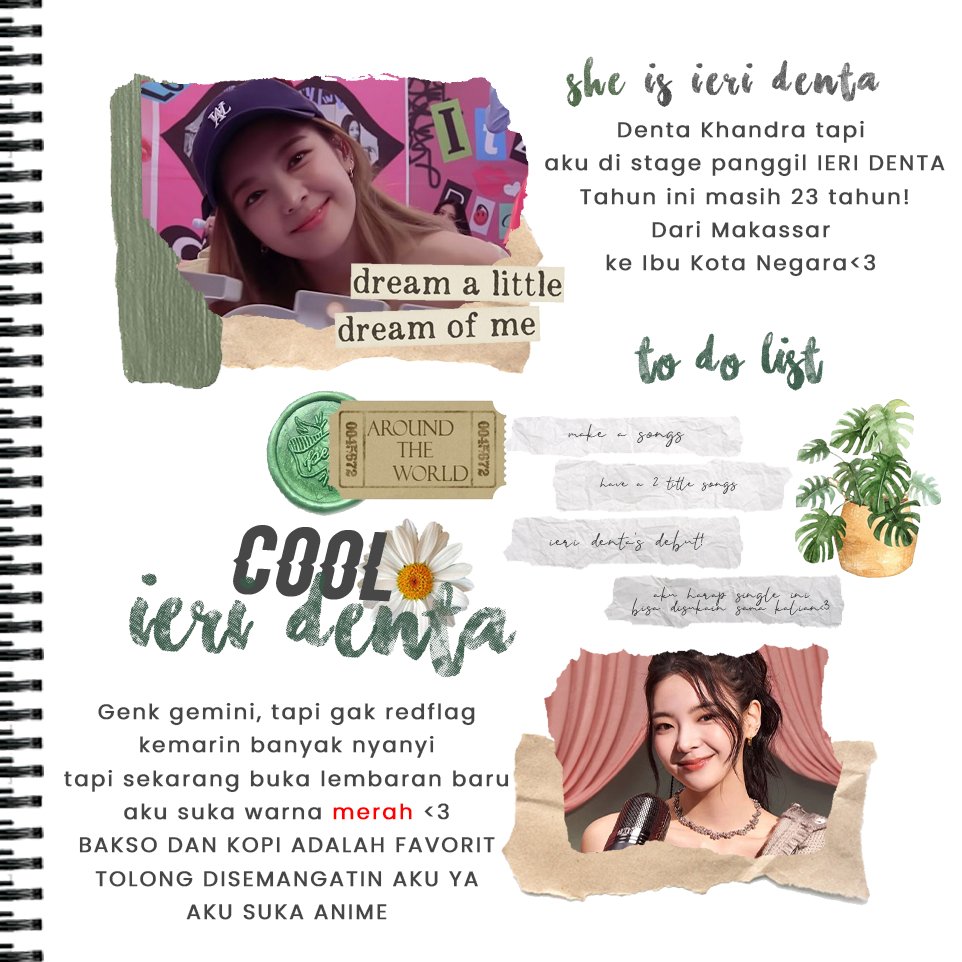 she is ieri denta
Denta Khandra tapi
aku di stage panggil IERI DENTA
Tahun ini masih 23 tahun!
Dari Makassar
ke Ibu Kota Negara<3
dream a little
dream of me
to do list
AROUND
THE
WORLD
0045672
0045672
make a songs
have a 2 title songs
ieri denta's debut!
aku harap single ini
bisa disukain sama kalian<3
COOL
ieri denta
Genk gemini, tapi gak redflag
kemarin banyak nyanyi
tapi sekarang buka lembaran baru
aku suka warna merah <3
BAKSO DAN KOPI ADALAH FAVORIT
TOLONG DISEMANGATIN AKU YA
AKU SUKA ANIME